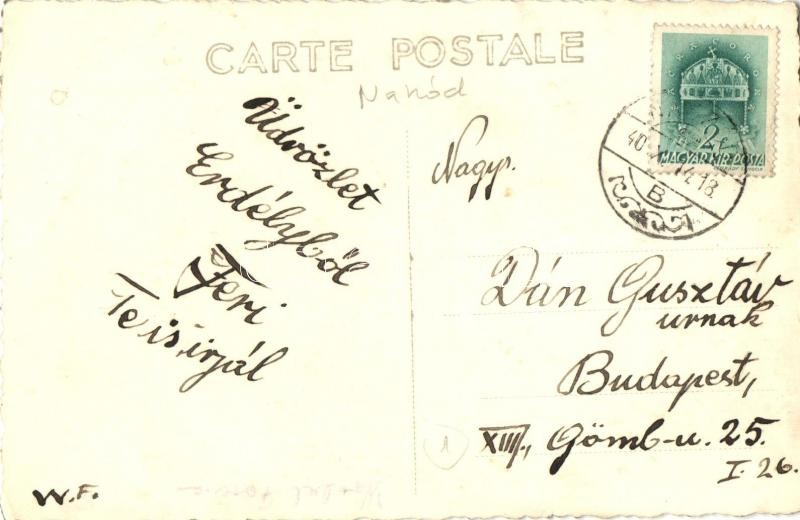 CARTE POSTALE
Nahód
Üdvözlet
Erdélyből
Feri
Te is írjál
W.F.
Nagys.
Dán Gusztáv
urnak
Budapest,
XIII., Gömb-u. 25.
I. 26.
1
2f
MAGYAR KIR. POSTA
40
18
B